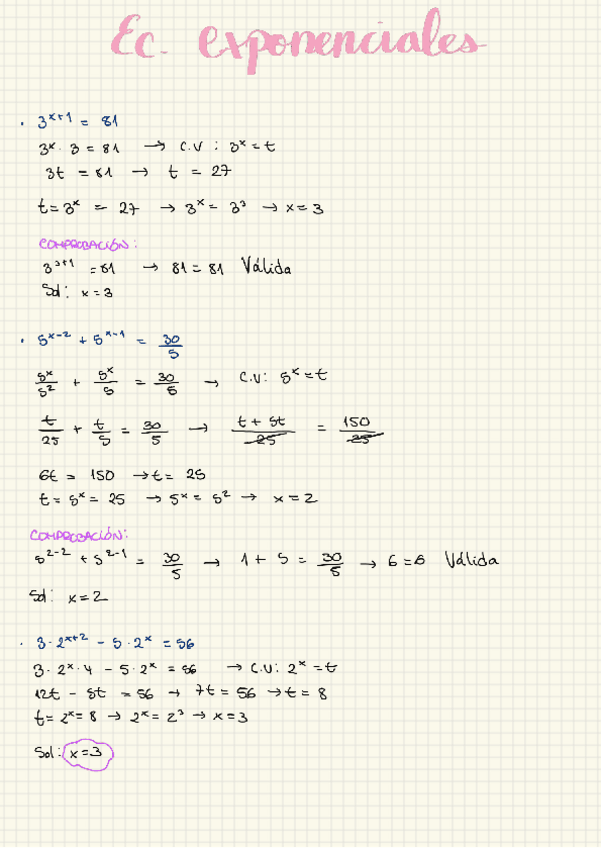 Ec. exponenciales
· 3^(x+1) = 81
3^x · 3 = 81 → C.V : 3^x = t
3t = 81 → t = 27
t = 3^x = 27 → 3^x = 3^3 → x = 3
COMPROBACIÓN:
3^(3+1) = 81 → 81 = 81 Válida
Sol: x = 3
· 5^(x-2) + 5^(x-1) = 30/5
5^x/5^2 + 5^x/5 = 30/5 → C.V: 5^x = t
t/25 + t/5 = 30/5 → (t + 5t)/25 = 150/25
6t = 150 → t = 25
t = 5^x = 25 → 5^x = 5^2 → x = 2
COMPROBACIÓN:
5^(2-2) + 5^(2-1) = 30/5 → 1 + 5 = 30/5 → 6 = 6 Válida
Sol: x = 2
· 3 · 2^(x+2) - 5 · 2^x = 56
3 · 2^x · 4 - 5 · 2^x = 56 → C.V: 2^x = t
12t - 5t = 56 → 7t = 56 → t = 8
t = 2^x = 8 → 2^x = 2^3 → x = 3
Sol: x = 3